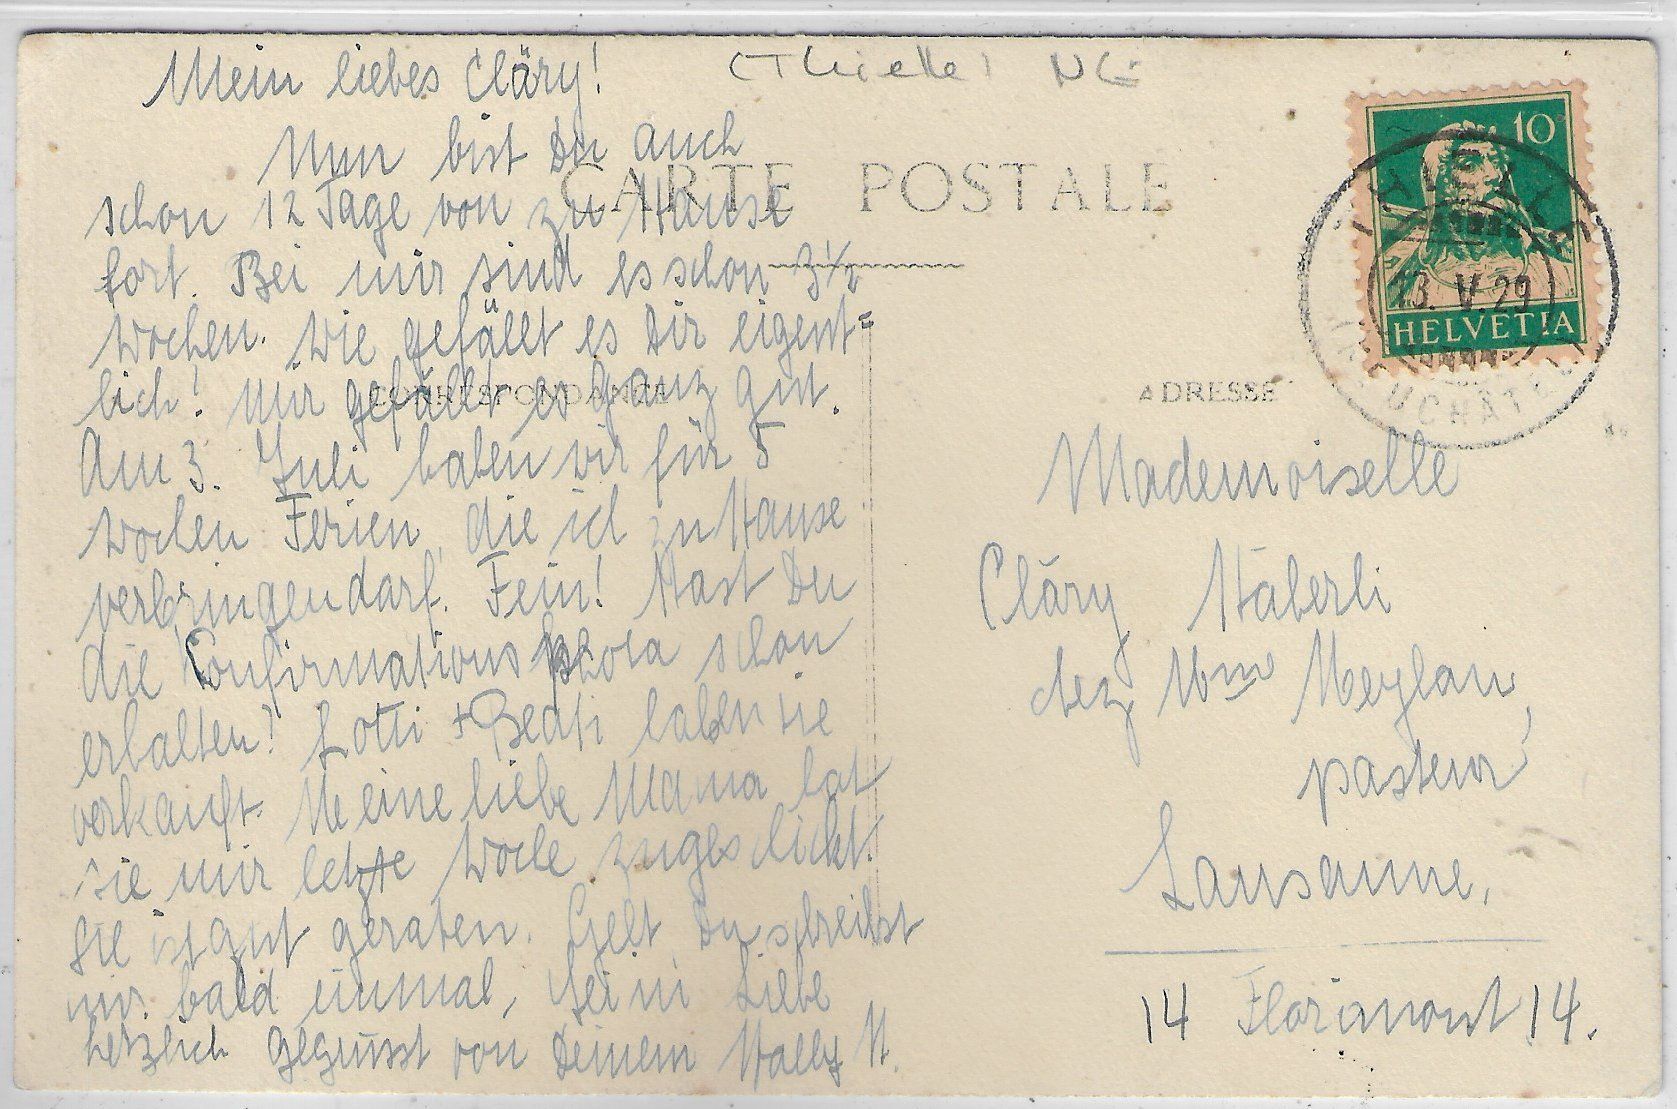 Mein liebes Cläry!
Nun bist Du auch
schon 12 Tage von zu Hause
fort. Bei mir sind es schon 3½
Wochen. Wie gefällt es Dir eigent=
lich? Mir gefällt es ganz gut.
Am 3. Juli haben wir für 5
Wochen Ferien, die ich zu Hause
verbringen darf. Fein! Hast Du
die Confirmationsphoto schon
erhalten? Lotti + Beati haben sie
verkauft. Meine liebe Mama hat
sie mir letzte Woche zugeschickt.
Sie ist gut geraten. Gelt Du schreibst
mir bald einmal, sei in Liebe
herzlich gegrüsst von Deinem Hally H.
(Thielle) NE
CARTE POSTALE
CORRESPONDANCE
ADRESSE
10
HELVETIA
THIELLE
13. V. 29
(NEUCHÂTEL)
Mademoiselle
Cläry Häberli
chez Mme Meylan,
pasteur
Lausanne,
14 Florimont 14.